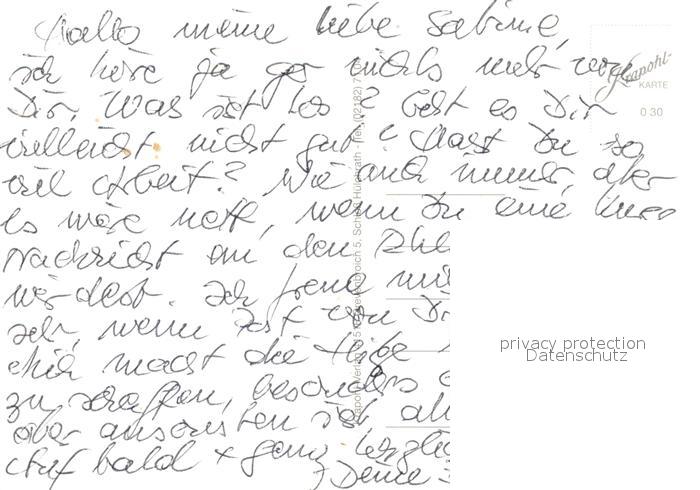 Hallo meine liebe Sabine,
ich höre ja gar nichts mehr von
Dir. Was ist los? Geht es Dir
vielleicht nicht gut? Hast Du so
viel Arbeit? Wie auch immer, aber
es wäre nett, wenn Du eine kurze
Nachricht an den
würdest. Ich freue mich
sehr, wenn ich von Dir
mir macht die Hitze
zu schaffen, besonders
aber ansonsten ist
Auf bald + ganz herzlich
Deine
Krapohl-
KARTE
0 30
Krapohl-Verlag, 41516 Grevenbroich 5, Schloß Hülchrath - Tel. (02182)
privacy protection
Datenschutz